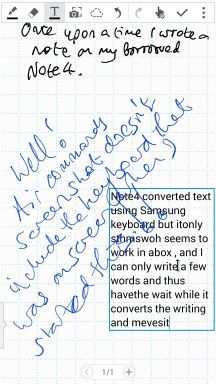 T
Once upon a time I wrote a
note on my borrowed
Note4.
Well!
Air commands
screenshot doesn't
include the keyboard that
was on screen
started
Note4 converted text
using Samsung
keyboard but itonly
sthmswoh seems to
work in abox , and I
can only write a few
words and thus
havethe wait while it
converts the writing
and mevesit
1/1